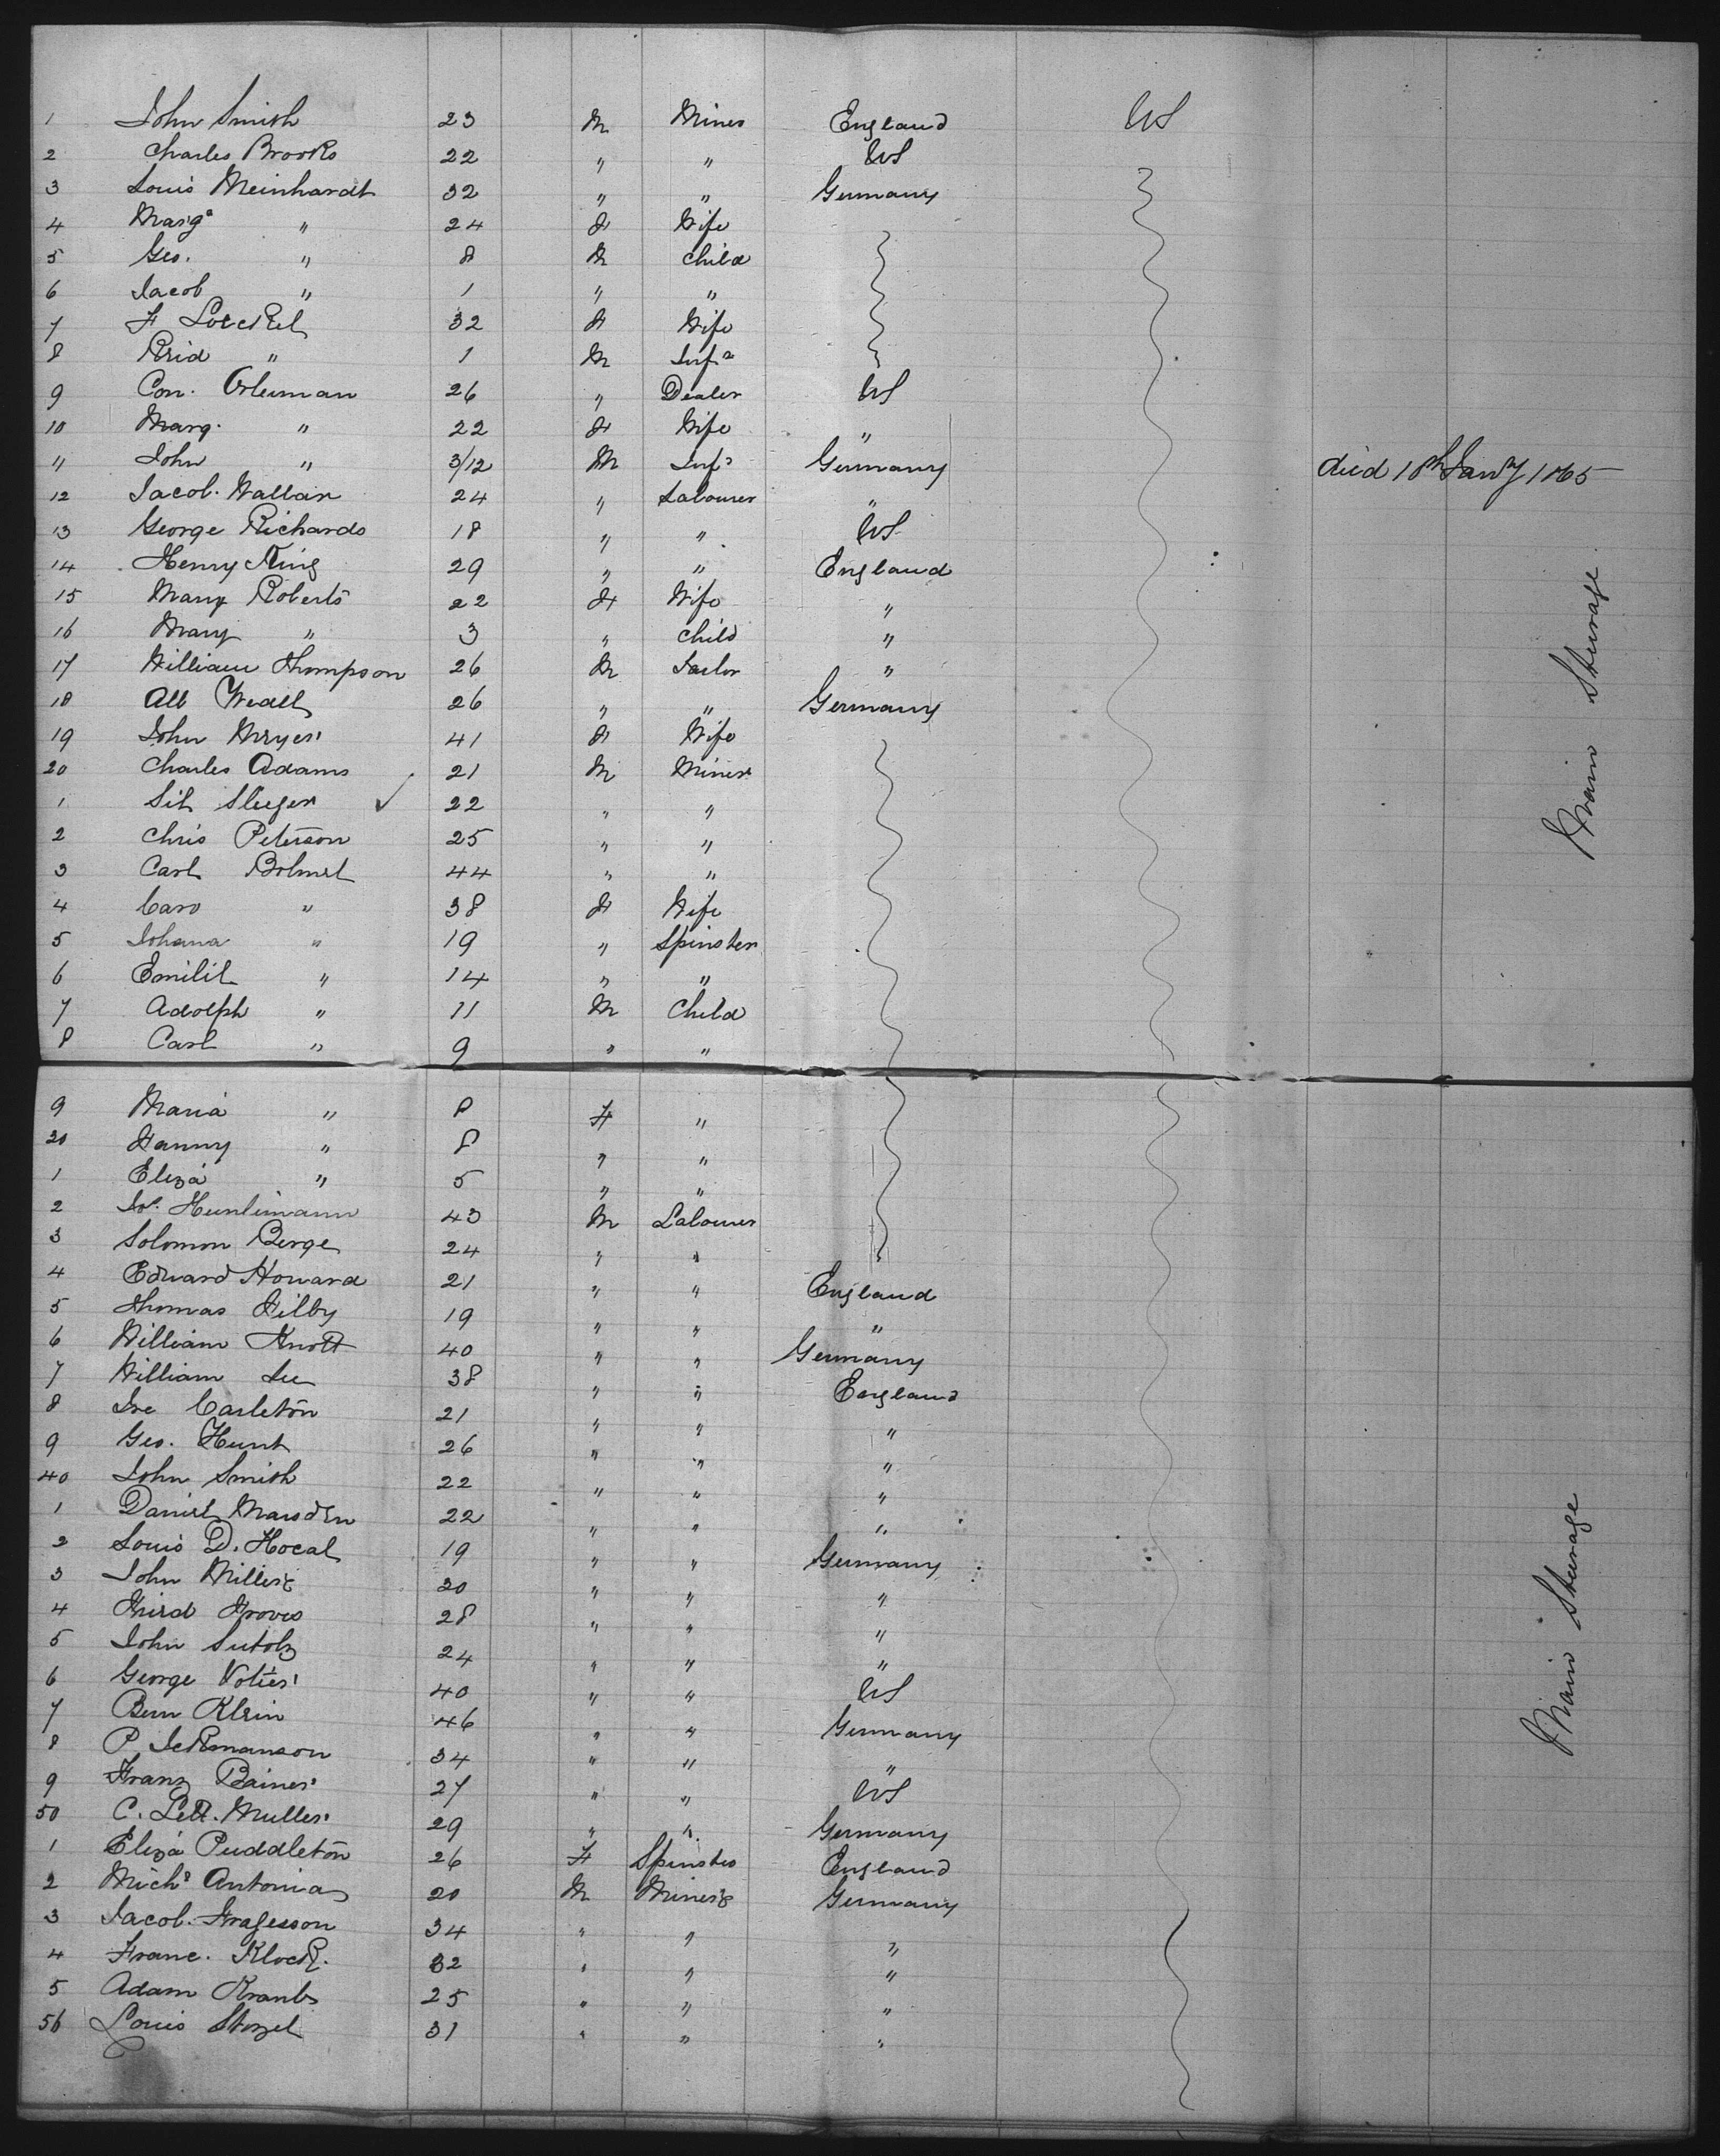 1 John Smith 23 M Miner England US
2 Charles Brooks 22 " " US
3 Louis Meinhardt 32 " " Germany
4 Margt " 24 F Wife
5 Geo. " 8 M Child
6 Jacob " 1 " "
7 F Loeckel 32 F Wife
8 Frid " 1 M Inft
9 Con. Orleman 26 " Dealer US
10 Marg. " 22 F Wife "
11 John " 3/12 M Inft Germany died 18th Jany 1865
12 Jacob. Wallar 24 " Labourer "
13 George Richards 18 " " US
14 Henry King 29 " " England
15 Mary Roberts 22 F Wife "
16 Mary " 3 " Child "
17 William Thompson 26 M Sailor "
18 Alb 26 " " Germany
19 John Meyer 41 F Wife
20 Charles Adams 21 M Miner
1 Sil Sleeger ✓ 22 " "
2 Chris Peterson 25 " "
3 Carl 44 " "
4 Caro " 38 F Wife
5 Johana " 19 " Spinster
6 Emilil " 14 " "
7 Adolph " 11 M Child
8 Carl " 9 " "
9 Maria " 8 F "
30 Fanny " 8 " "
1 Eliza " 5 " "
2 Jos. Hunlimann 43 M Labourer
3 Solomon Berge 24 " "
4 Edward Howard 21 " " England
5 Thomas Filby 19 " " "
6 William Knott 40 " " Germany
7 William Lee 38 " " England
8 Joe Carleton 21 " " "
9 Geo. Hunt 26 " " "
40 John Smith 22 " " "
1 Daniel Marsden 22 " " "
2 Louis D. Hocal 19 " " Germany
3 John Miller 20 " " "
4 28 " " "
5 John Sutolz 24 " " "
6 George Voltes 40 " " US
7 Bern Klein 46 " " Germany
8 P. Jckmanson 34 " " "
9 Franz Baines 27 " " US
50 C. Muller 29 " " Germany
1 Eliza Puddleton 26 F Spinster England
2 Michl Antonia 20 M Miner Germany
3 Jacob. Fragesson 34 " " "
4 Franc. Klock. 32 " " "
5 Adam Krantz 25 " " "
56 Louis Stozel 31 " " "
Main Steerage
Main Steerage